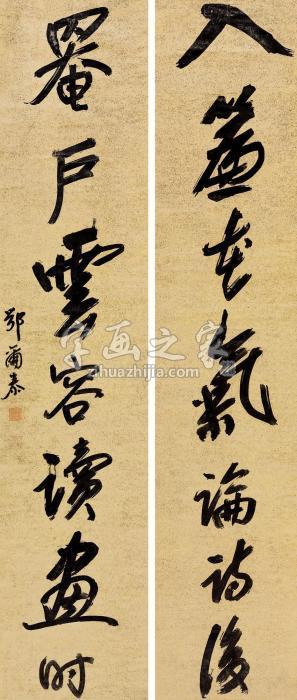 入簾花氣論詩後
罨户雲容讀畫时
鄂爾泰
字画之家
zihuazhijia.com